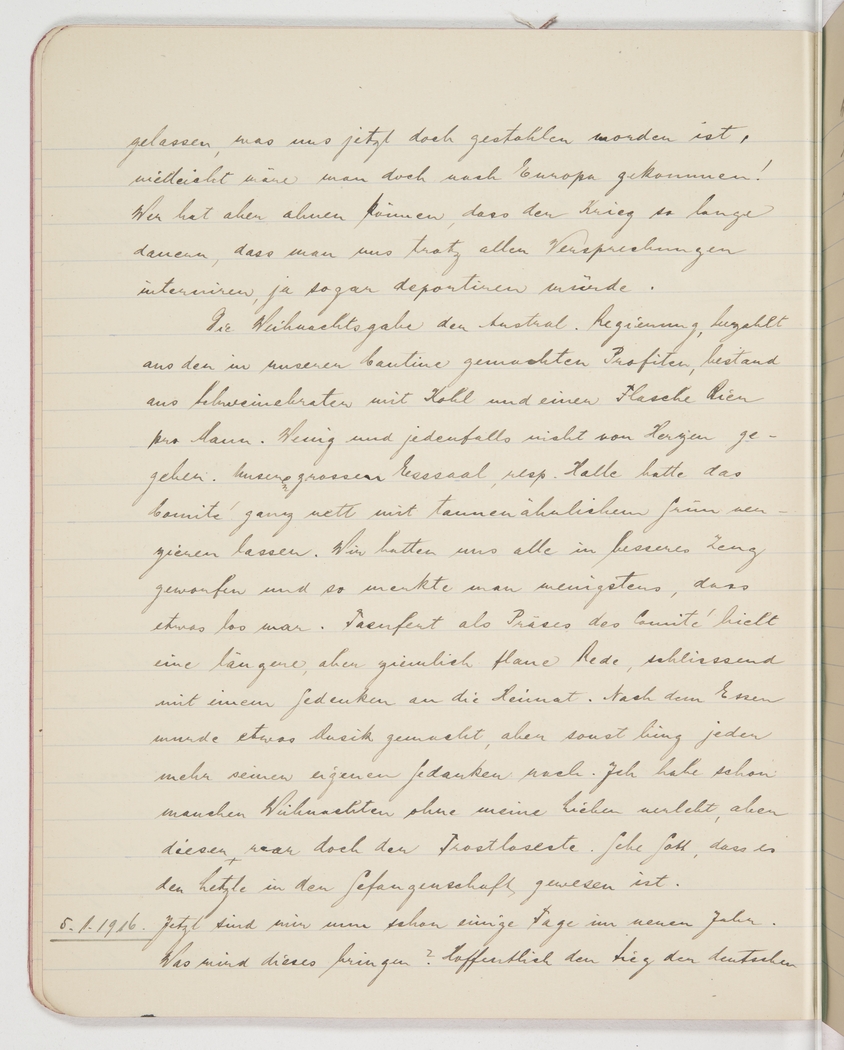 gelassen, was uns jetzt doch gestohlen worden ist,
vielleicht wäre man doch nach Europa gekommen!
Wer hat aber ahnen können, dass der Krieg so lange
dauern, dass man uns trotz allen Versprechungen
interniren, ja sogar deportiren würde.
Die Weihnachtsgabe der Austral. Regierung, bezahlt
aus den in unserer Cantine gemachten Profiten, bestand
aus Schweinebraten mit Kohl und einer Flasche Bier
pro Mann. Wenig und jedenfalls nicht von Herzen ge-
geben. Unseren grossen Esssaal, resp. Halle hatte das
Comité ganz nett mit tannenähnlichem Grün ver-
zieren lassen. Wir hatten uns alle in besseres Zeug
geworfen und so merkte man wenigstens, dass
etwas los war. als Präses des Comité hielt
eine längere, aber ziemlich flaue Rede, schliessend
mit einem Gedenken an die Heimat. Nach dem Essen
wurde etwas Musik gemacht, aber sonst hing jeder
mehr seinen eigenen Gedanken nach. Ich habe schon
manchen Weihnachten ohne meine Lieben verlebt, aber
dieser war doch der Trostloseste. Gebe Gott, dass es
der Letzte in der Gefangenschaft gewesen ist.
5.1.1916. Jetzt sind wir nun schon einige Tage im neuen Jahr.
Was wird dieses bringen? Hoffentlich den Sieg der deutschen